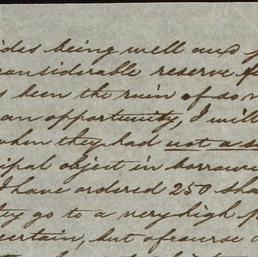 ides being well and
considerable reserve
s been the ruin of so
an opportunity, I will
when they had not a s
ipal object in borrow
I have ordered 250 sha
they go to a very high p
certain, but of course